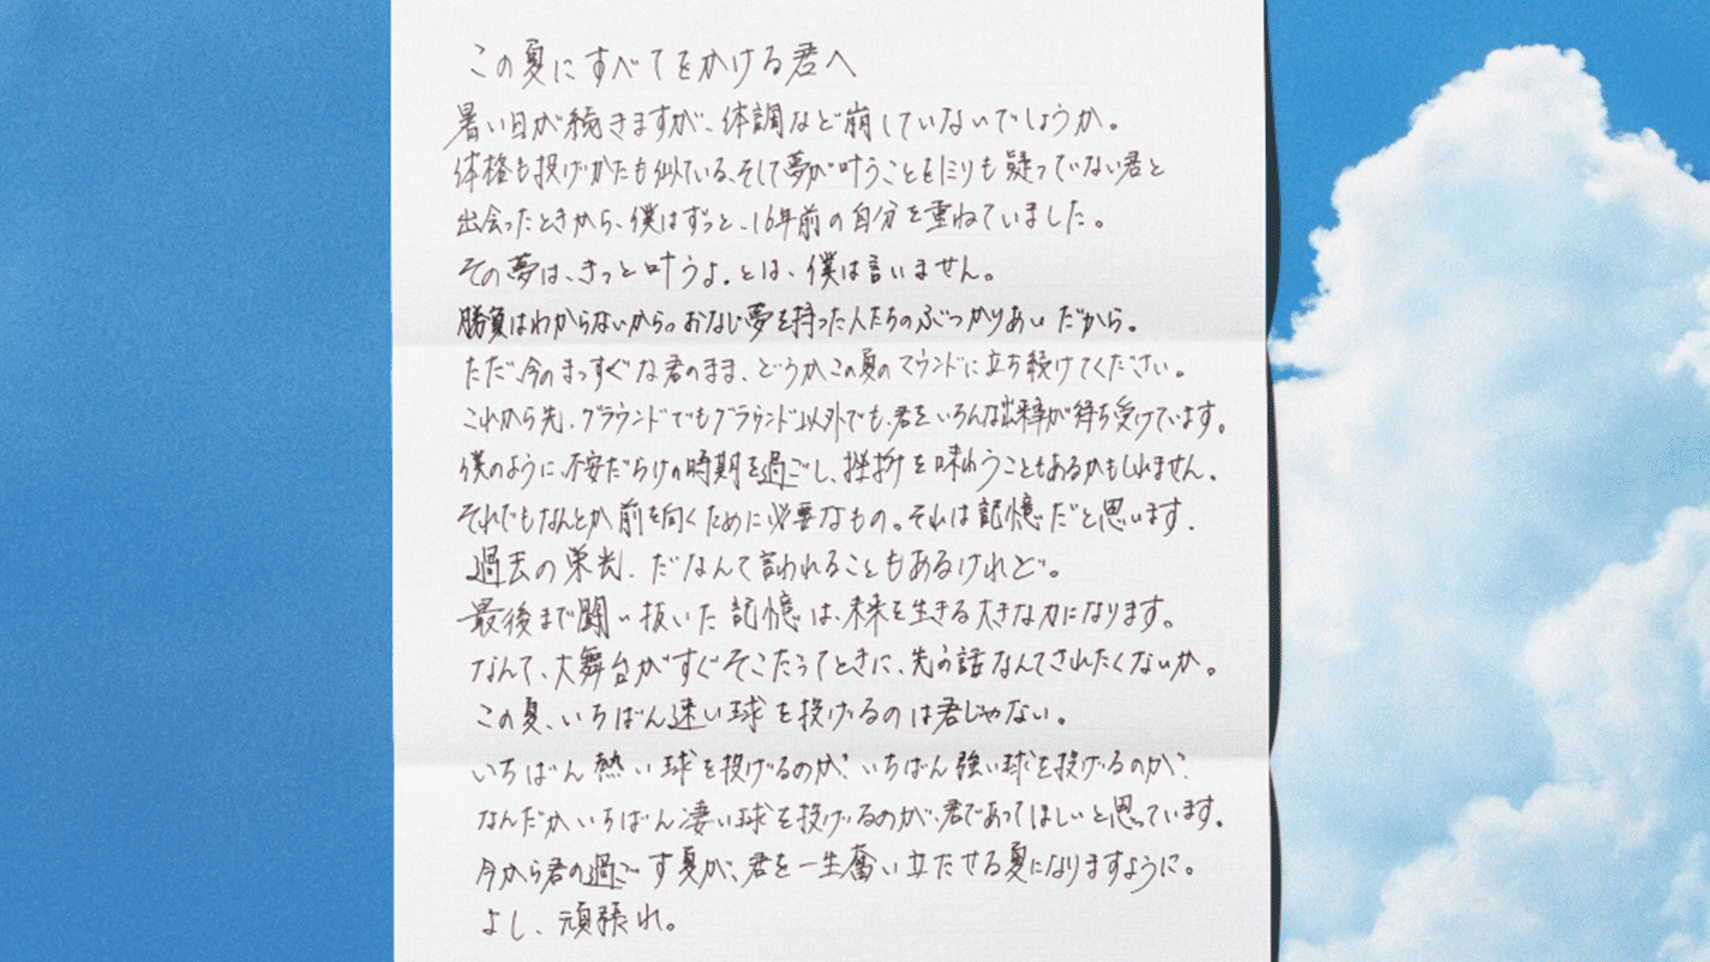 この夏にすべてをかける君へ
暑い日が続きますが、体調など崩していないでしょうか。
体格も投げかたも似ている、そして夢が叶うことを疑っていない君と
出会ったときから、僕はずっと、16年前の自分を重ねていました。
その夢は、きっと叶うよ。とは、僕は言いません。
勝負はわからないから。おなじ夢を持った人たちのぶつかりあいだから。
ただ、今のまっすぐな君のまま、どうかこの夏のマウンドに立ち続けてください。
これから先、グラウンドでもグラウンド以外でも、君をいろんな出来事が待ち受けています。
僕のように、不安だらけの時期を過ごし、挫折を味わうこともあるかもしれません。
それでもなんとか前を向くために必要なもの。それは記憶だと思います。
過去の栄光、だなんて言われることもあるけれど。
最後まで闘い抜いた記憶は、未来を生きる大きな力になります。
なんて、大舞台がすぐそこだってときに、先の話なんてされたくないか。
この夏、いちばん速い球を投げるのは君じゃない。
いちばん熱い球を投げるのが、いちばん強い球を投げるのが、
なんだかいちばん凄い球を投げるのが、君であってほしいと思っています。
今から君の過ごす夏が、君を一生奮い立たせる夏になりますように。
よし、頑張れ。